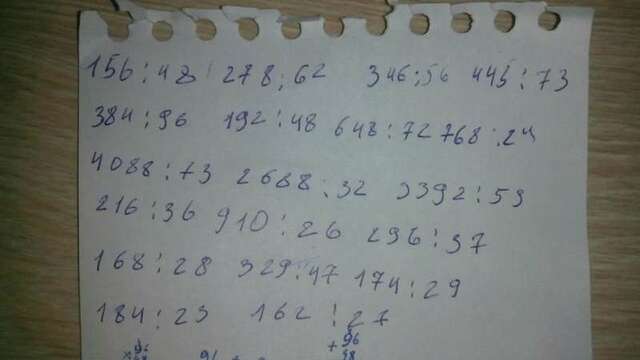 156:48 278:62 346:56 445:73
384:96 192:48 648:72 768:24
4088:73 2688:32 3392:53
216:36 910:26 296:37
168:28 329:47 174:29
184:23 162:27
+96
48